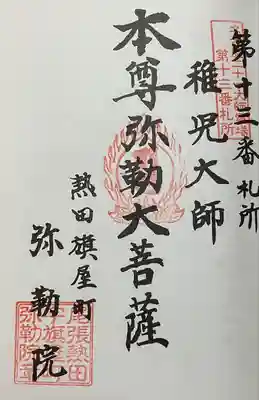 第十三番札所
稚児大師
本尊弥勒大菩薩
熱田旗屋町
弥勒院
第十三番札所
尾張熱田
弥勒院章